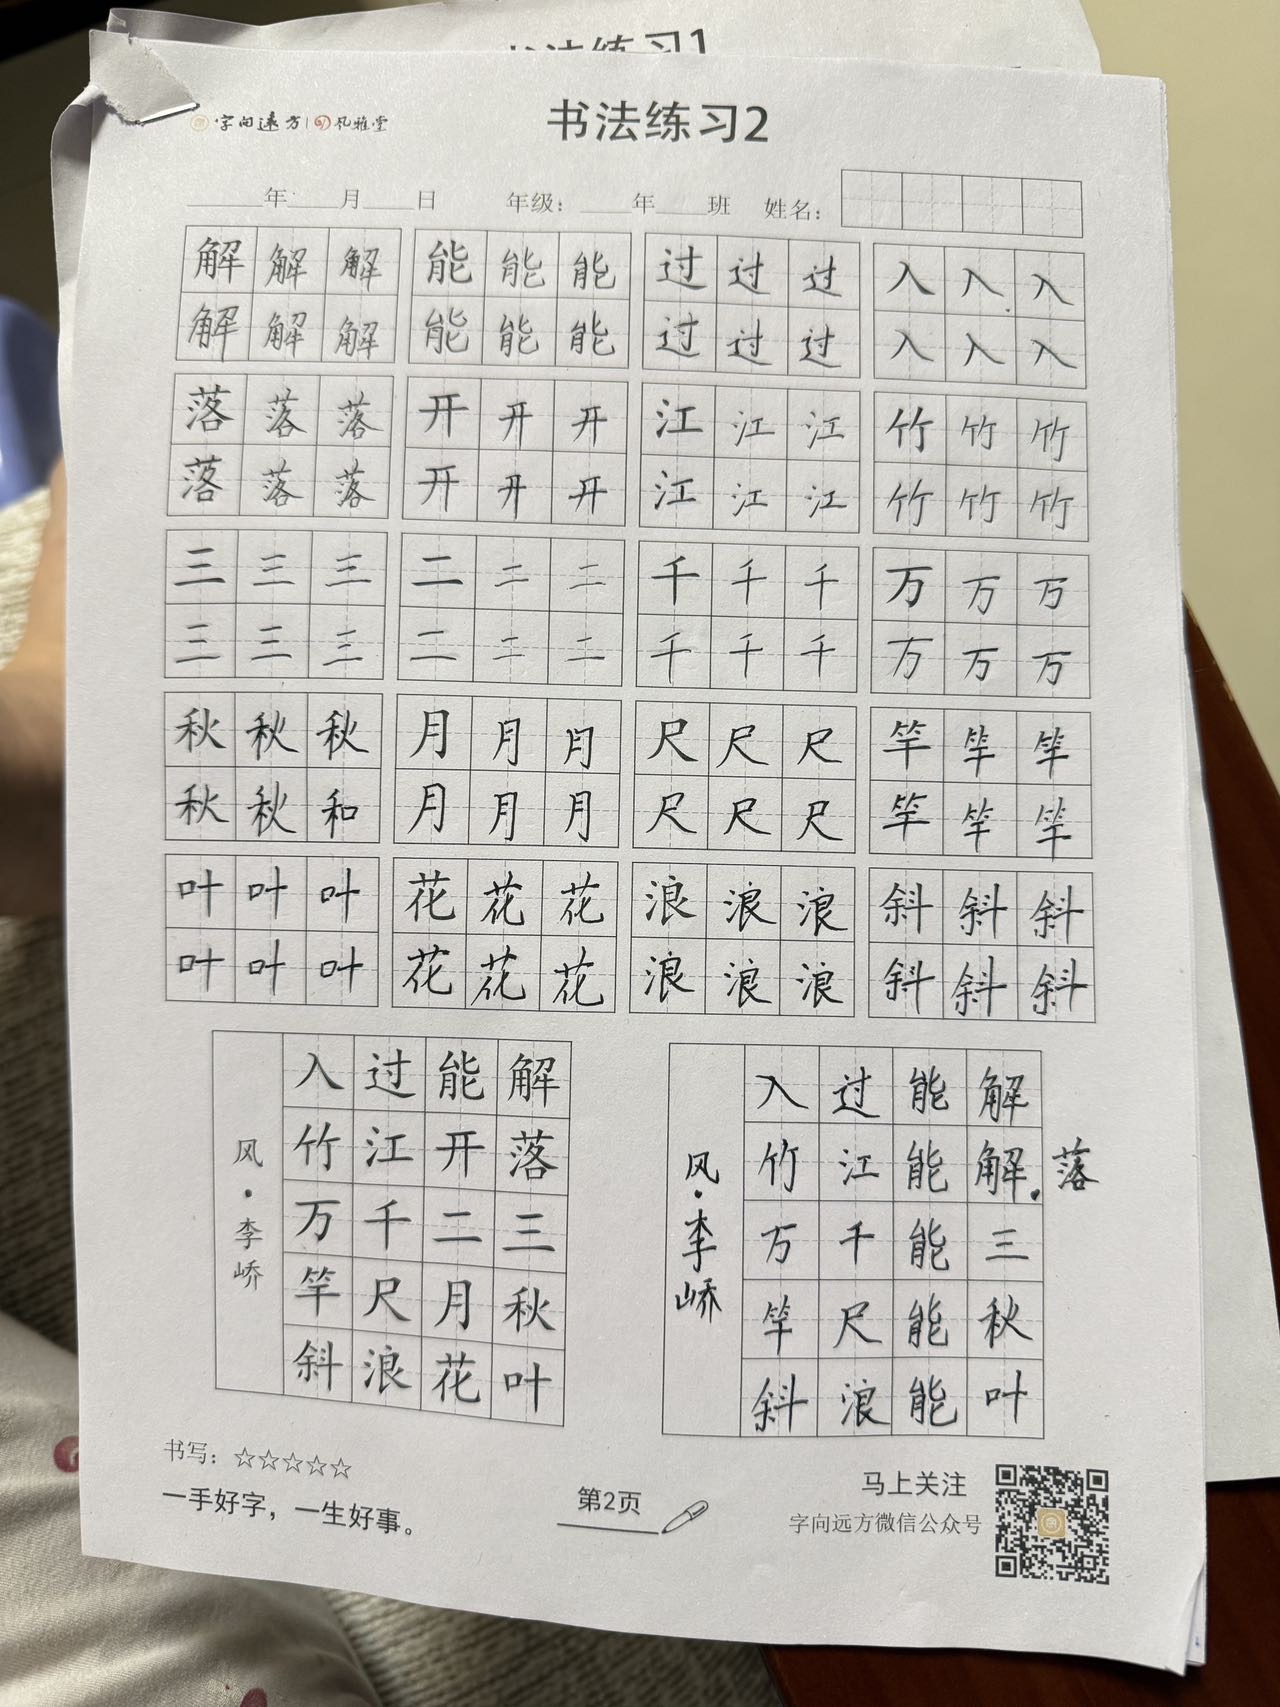 书法练习1
字向远方 风雅堂
书法练习2
年 月 日 年级： 年 班 姓名：
解 解 解 能 能 能 过 过 过 入 入 入
解 解 解 能 能 能 过 过 过 入 入 入
落 落 落 开 开 开 江 江 江 竹 竹 竹
落 落 落 开 开 开 江 江 江 竹 竹 竹
三 三 三 二 二 二 千 千 千 万 万 万
三 三 三 二 二 二 千 千 千 万 万 万
秋 秋 秋 月 月 月 尺 尺 尺 竿 竿 竿
秋 秋 和 月 月 月 尺 尺 尺 竿 竿 竿
叶 叶 叶 花 花 花 浪 浪 浪 斜 斜 斜
叶 叶 叶 花 花 花 浪 浪 浪 斜 斜 斜
解落三秋叶
能开二月花
过江千尺浪
入竹万竿斜
风·李峤
落
解解三秋叶
能能能能能
过江千尺浪
入竹万竿斜
风·李峤
书写：☆☆☆☆☆
一手好字，一生好事。
第2页
马上关注
字向远方微信公众号